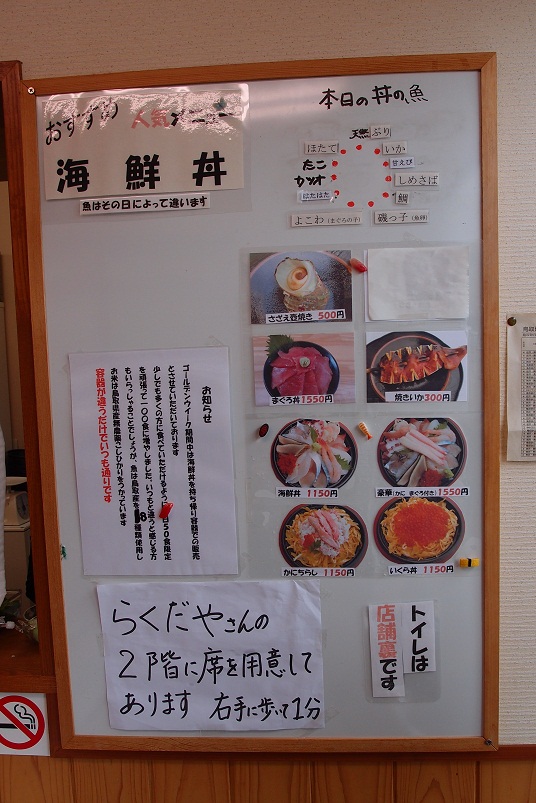 おすすめ 人気メニュー
海鮮丼
魚はその日によって違います
本日の丼の魚
天然ぶり
いか
甘えび
しめさば
鯛
磯っ子(魚卵)
よこわ(まぐろの子)
はたはた
カツオ
たこ
ほたて
さざえ壺焼き 500円
まぐろ丼1550円
焼きいか300円
海鮮丼 1150円
豪華(かに まぐろ付き)1550円
かにちらし 1150円
いくら丼 1150円
お知らせ
ゴールデンウイーク期間中は海鮮丼を持ち帰り容器での販売
とさせていただいております
少しでも多くの方に食べていただけるよう 日50食限定
を頑張って一〇〇食に増やしました。いつもと違うと感じる方
もいらっしゃることでしょうが、魚は鳥取産を8種類使用し
お米は鳥取県産無農薬こしひかりをつかっています
容器が違うだけでいつも通りです
らくだやさんの
2階に席を用意して
あります 右手に歩いて1分
トイレは
店舗裏です